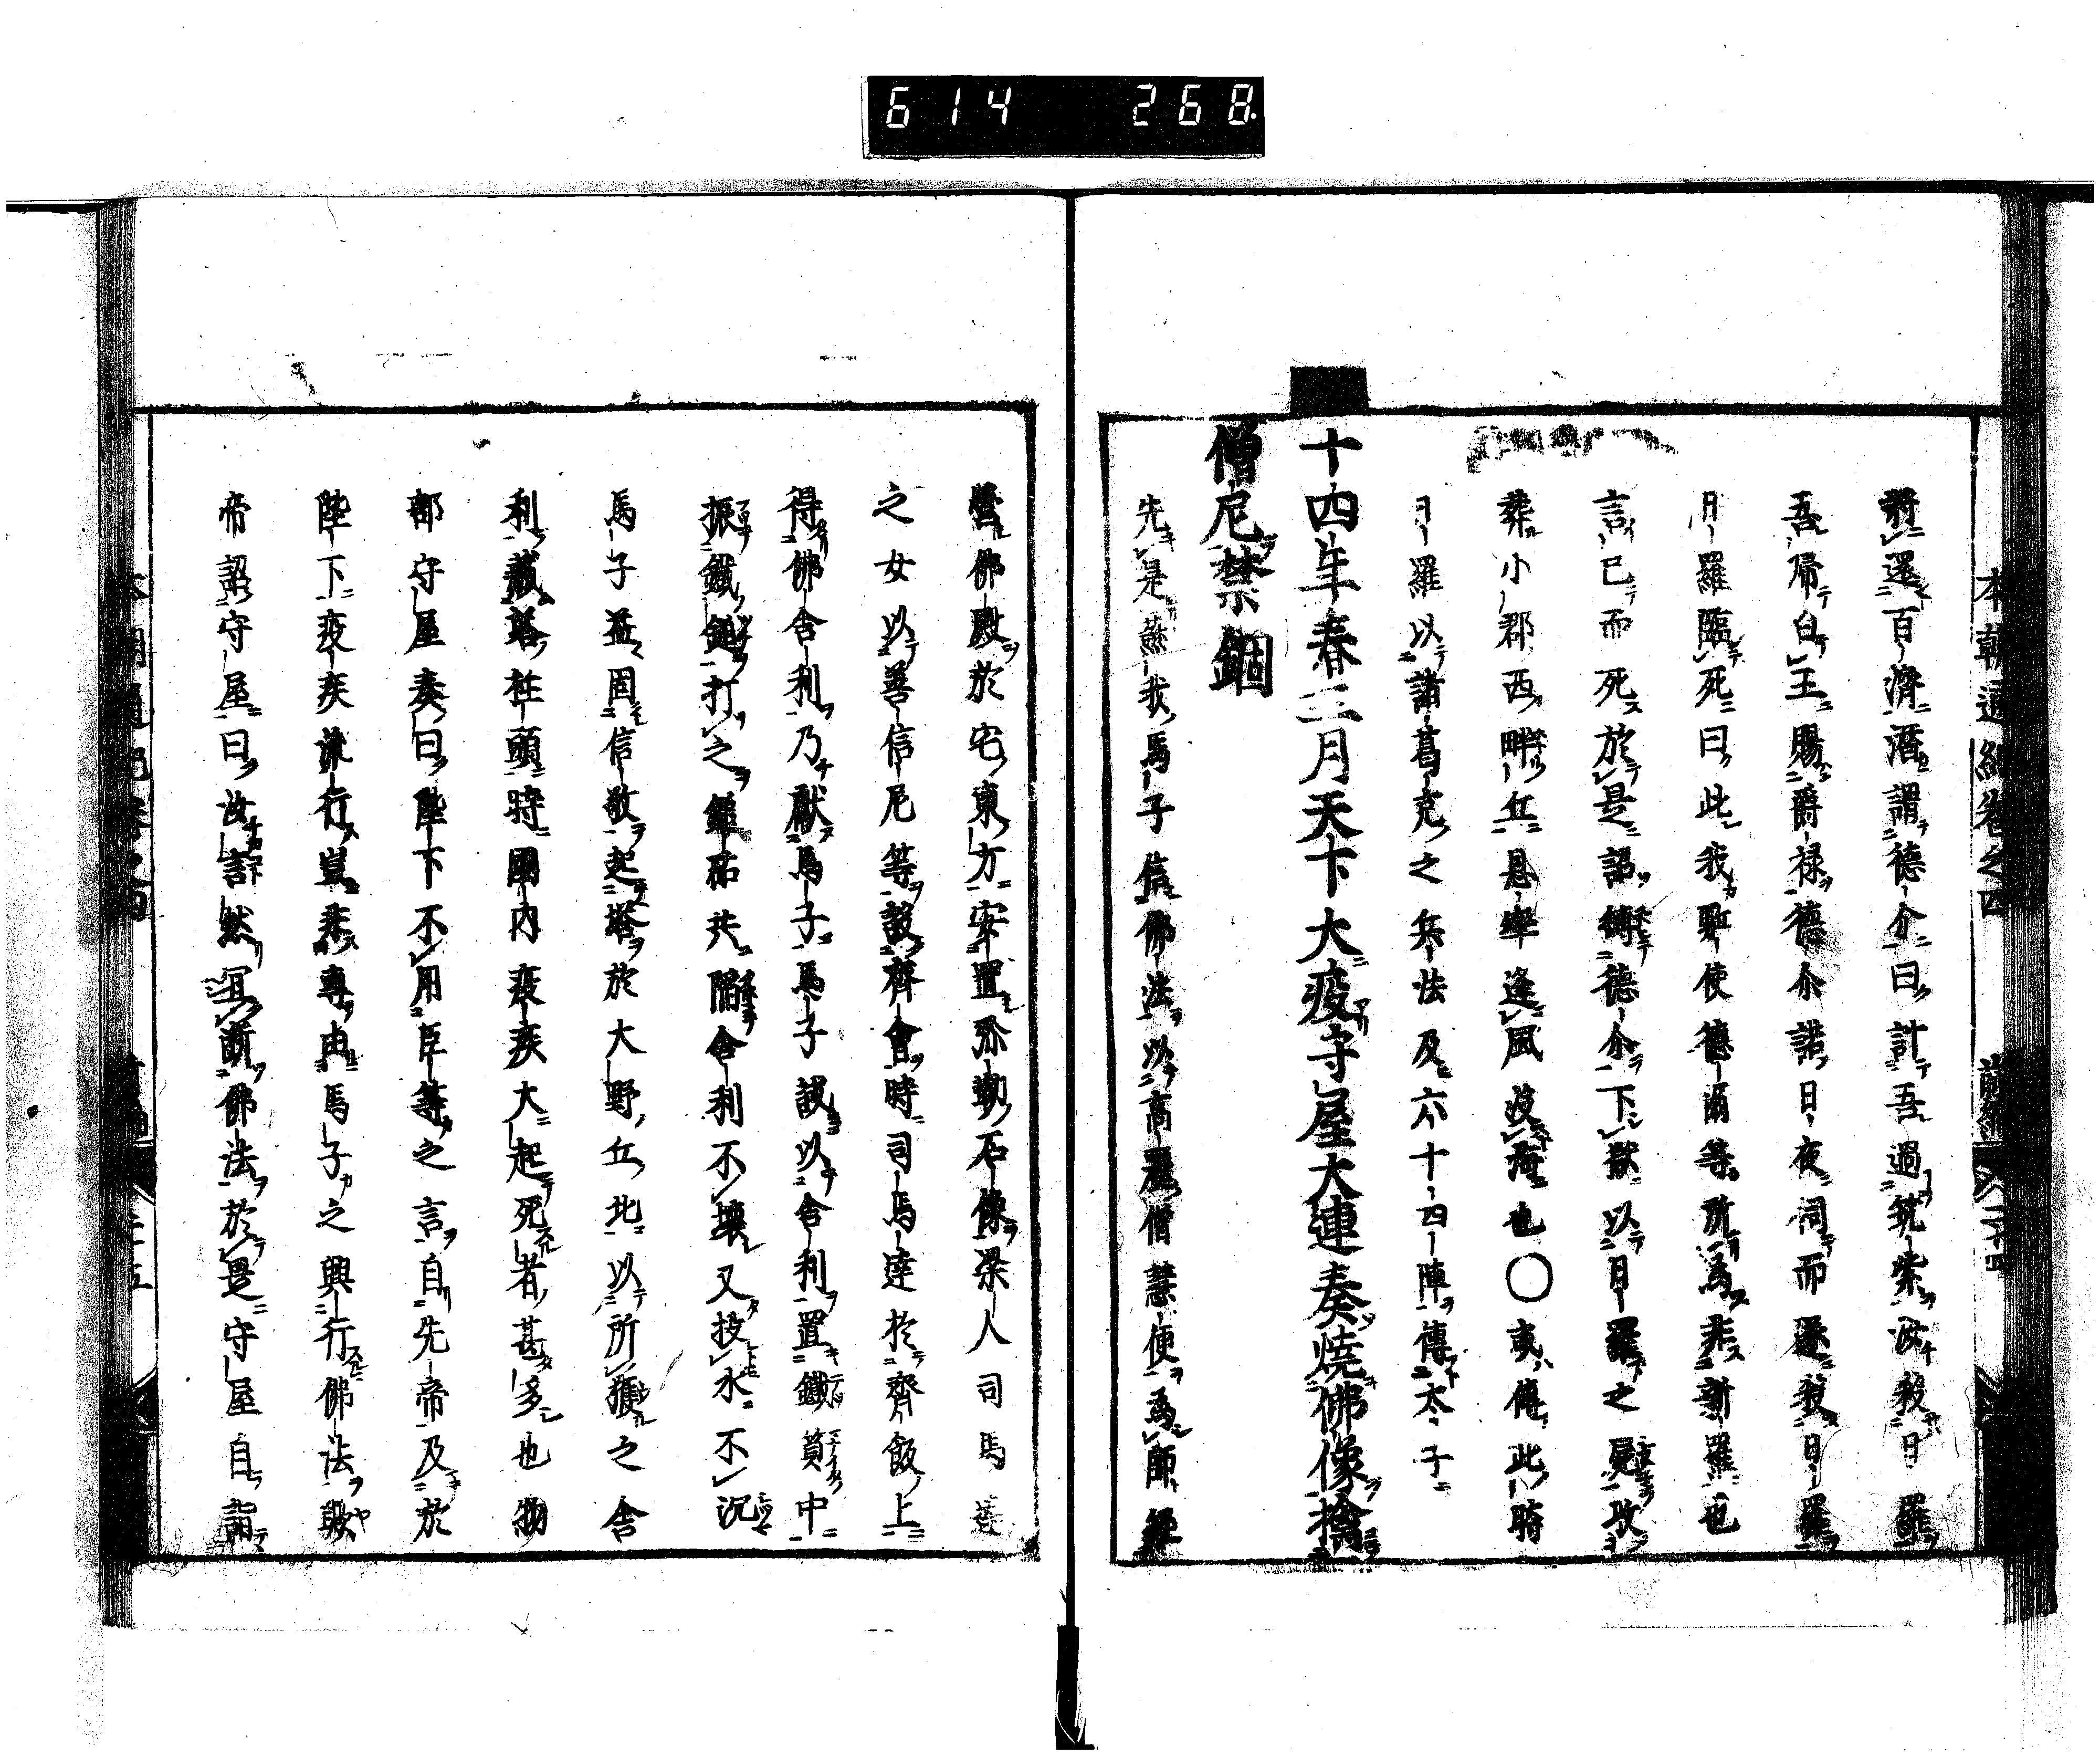 614 268
本朝通紀卷之四 前編 二十四
還百濟潛謂德爾曰計吾過筑紫汝殺日羅
吾帰白王賜爵禄德尒諾日夜伺而遂殺日羅
日羅臨死曰此我駈使德爾等所爲非新羅也
言已而死於是詔縛德尒下獄以日羅之屍收
葬小郡西畔丘恩率逢風没海也○東傳此時
日羅以諸葛克之兵法及六十四陣傳太子
十四年春三月天下大疫守屋大連奏燒佛像擒
僧尼禁錮
先是蘇我馬子信佛法以高麗僧慧便爲師經
營佛殿於宅東方安置弥勒石像梁人司馬達
之女以善信尼等設齊會時司馬達於齊飯上
得佛舎利乃獻馬子馬子試以舎利置鐵質中
振鐵鎚打之鎚砧共陷舎利不壞又投水不沉
馬子益固信敬起塔於大野丘北以所獲之舎
利蔵塔柱頭時國内疫疾大起死者甚多也物
部守屋奏曰陛下不用臣等之言自先帝及於
陛下疫疾流行豈非專由馬子之興行佛法歟
帝詔守屋曰汝言灼然宜断佛法於是守屋自詣
本朝通紀卷之四 前編 二十五